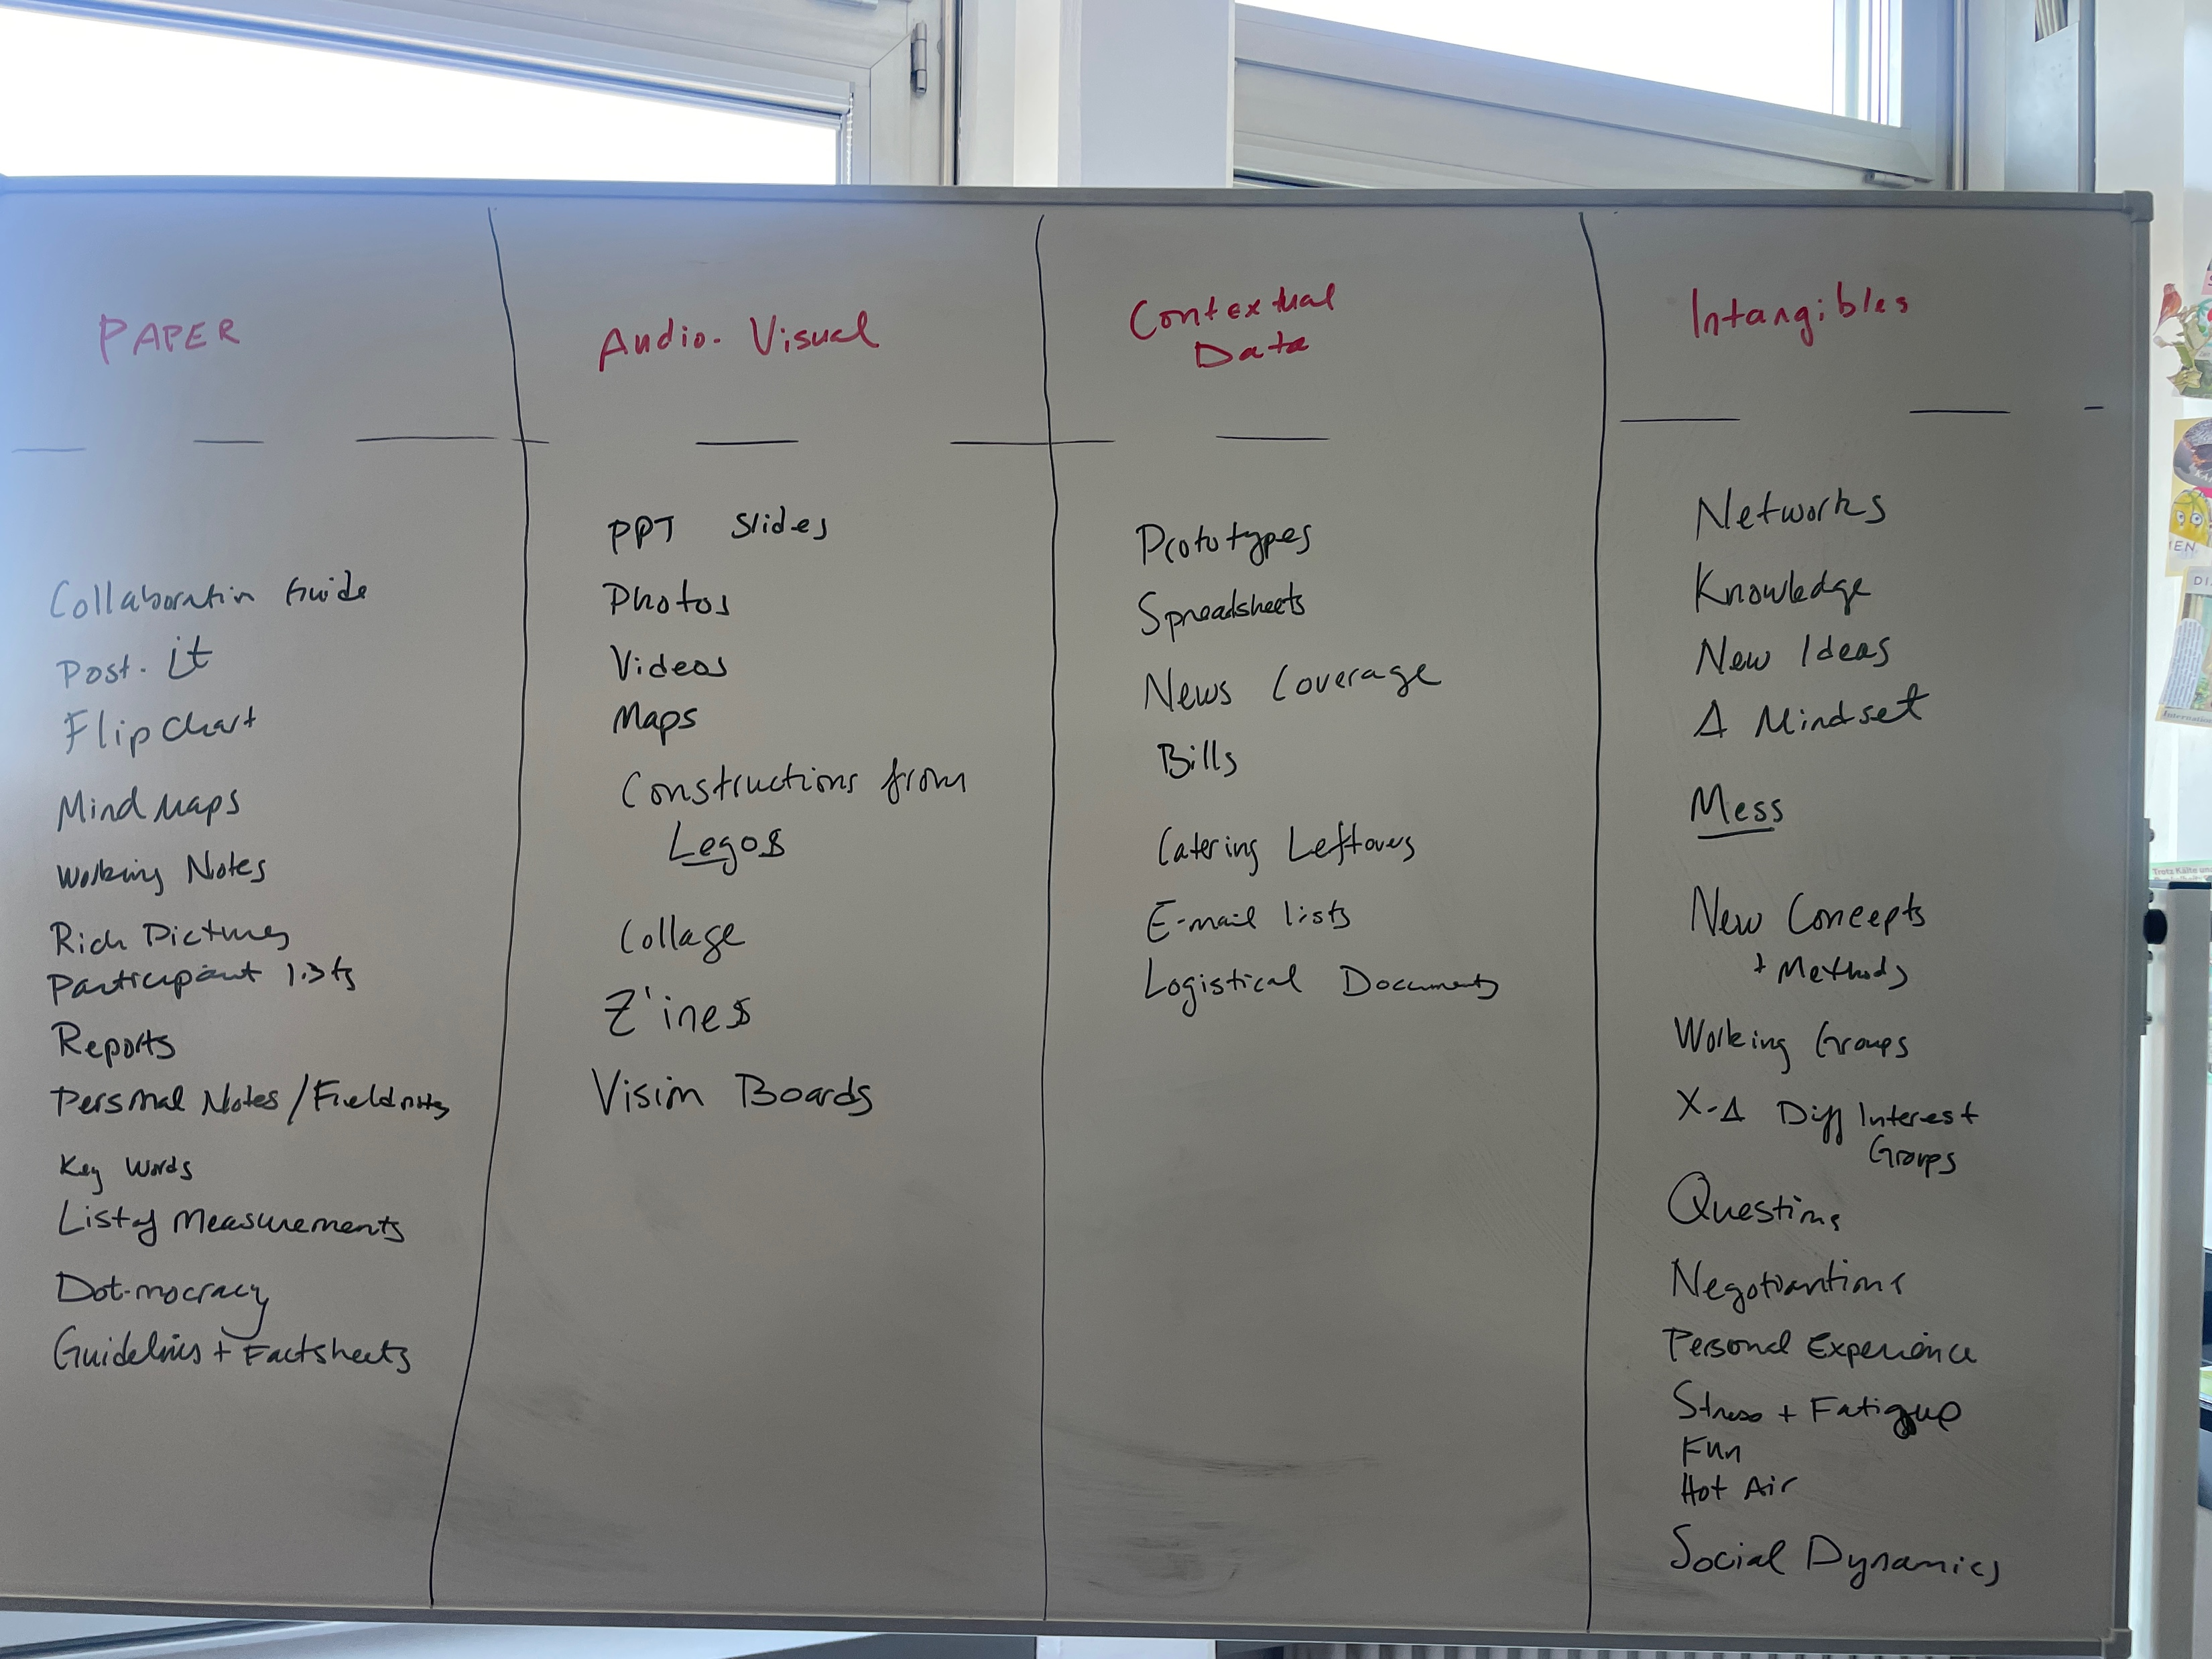 PAPER
Collaboration Guide
Post. it
Flip Chart
Mind Maps
Working Notes
Rich Pictures
Participant lists
Reports
Personal Notes / Fieldnotes
Key Words
List of Measurements
Dot-mocracy
Guidelines + Factsheets
Audio-Visual
PPT Slides
Photos
Videos
Maps
Constructions from
Legos
Collage
Z'ines
Vision Boards
Contextual
Data
Prototypes
Spreadsheets
News Coverage
Bills
Catering Leftovers
E-mail lists
Logistical Documents
Intangibles
Networks
Knowledge
New Ideas
Δ Mindset
Mess
New Concepts
+ Methods
Working Groups
X-Δ Diff Interest
Groups
Questions
Negotiantions
Personal Experience
Stress + Fatigue
Fun
Hot Air
Social Dynamics